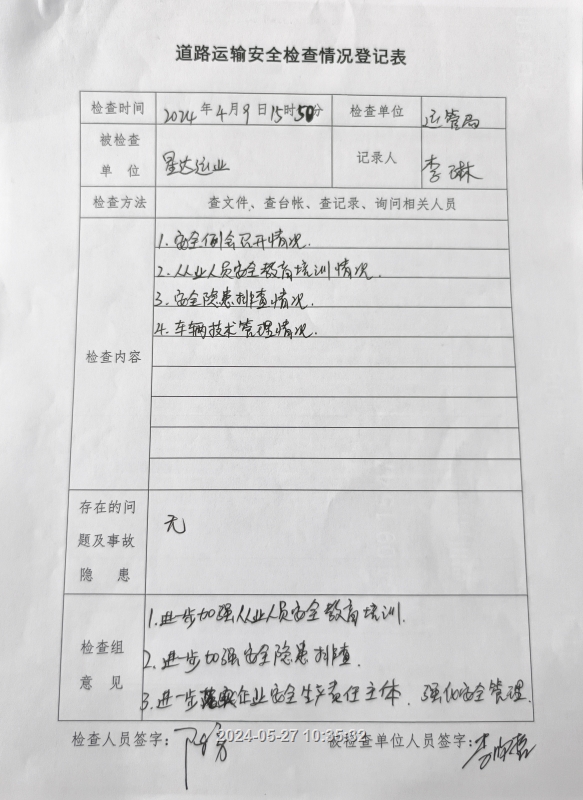 道路运输安全检查情况登记表
检查时间 2024年4月9日15时50分 检查单位 运管局
被检查单位 星达运业 记录人 李琳
检查方法 查文件、查台帐、查记录、询问相关人员
检查内容
1.安全例会召开情况.
2.从业人员安全教育培训情况.
3.安全隐患排查情况.
4.车辆技术管理情况.
存在的问题及事故隐患
无
检查组意见
1.进步加强从业人员安全教育培训.
2.进步加强安全隐患排查.
3.进一步落实企业安全生产责任主体.强化安全管理.
检查人员签字:
被检查单位人员签字:
2024-05-27 10:35:32